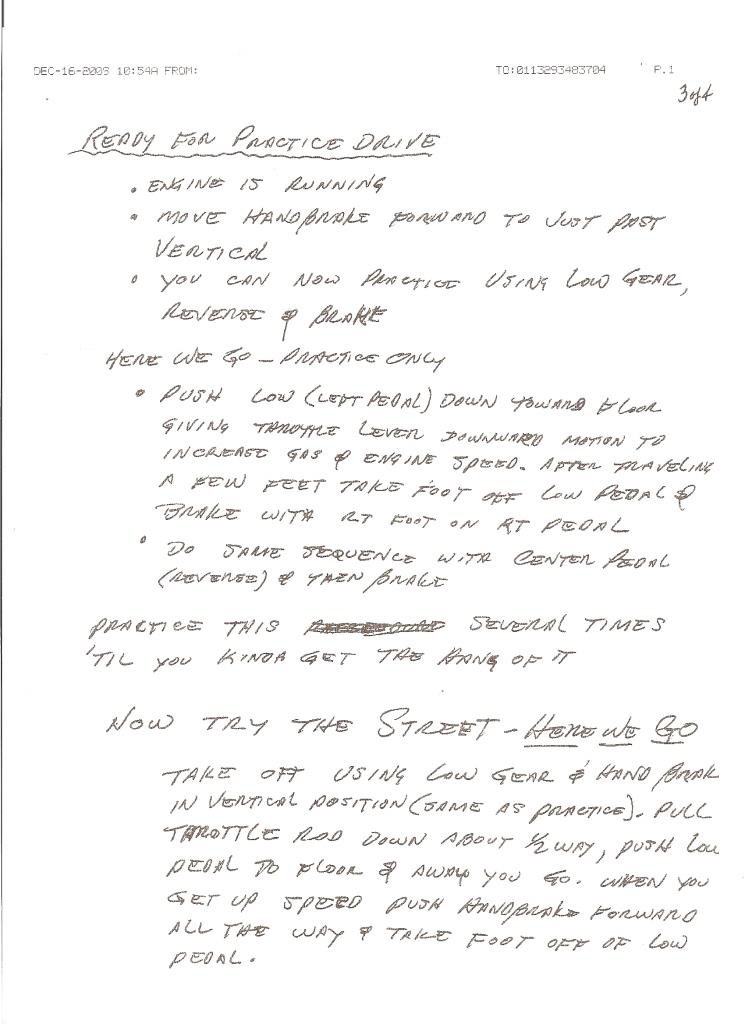 DEC-16-2003 10:54A FROM: TO:0113293483704 P.1
3 of 4
READY FOR PRACTICE DRIVE
• ENGINE IS RUNNING
• MOVE HANDBRAKE FORWARD TO JUST PAST
VERTICAL
• YOU CAN NOW PRACTICE USING LOW GEAR,
REVERSE & BRAKE
HERE WE GO - PRACTICE ONLY
• PUSH LOW (LEFT PEDAL) DOWN TOWARD FLOOR
GIVING THROTTLE LEVER DOWNWARD MOTION TO
INCREASE GAS & ENGINE SPEED. AFTER TRAVELING
A FEW FEET TAKE FOOT OFF LOW PEDAL &
BRAKE WITH RT FOOT ON RT PEDAL
• DO SAME SEQUENCE WITH CENTER PEDAL
(REVERSE) & THEN BRAKE
PRACTICE THIS SEVERAL TIMES
'TIL YOU KINDA GET THE HANG OF IT
NOW TRY THE STREET - HERE WE GO
TAKE OFF USING LOW GEAR & HAND BRAK
IN VERTICAL POSITION (SAME AS PRACTICE). PULL
THROTTLE ROD DOWN ABOUT 1/2 WAY, PUSH LOW
PEDAL TO FLOOR & AWAY YOU GO. WHEN YOU
GET UP SPEED PUSH HANDBRAKE FORWARD
ALL THE WAY & TAKE FOOT OFF OF LOW
PEDAL.